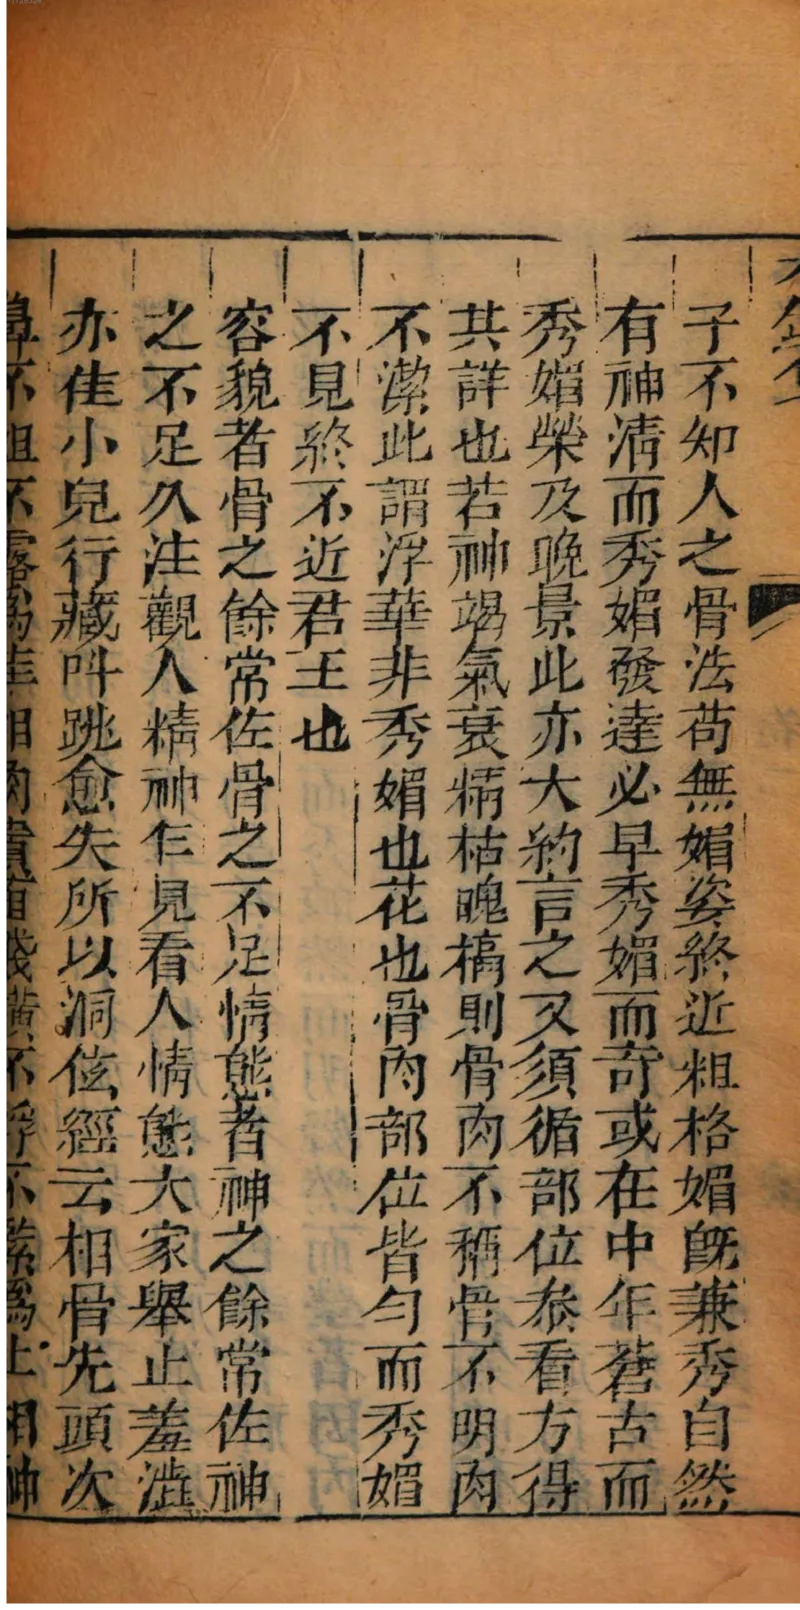 子不知人之骨法苟無媚姿終近粗格媚旣兼秀自然
有神清而秀媚發達必早秀媚而奇或在中年蒼古而
秀媚榮及晚景此亦大約言之又須循部位叅看方得
其詳也若神竭氣衰精枯魄槁則骨肉不稱骨不明肉
不潔此謂浮華非秀媚也花也骨肉部位皆勻而秀媚
不見終不近君王也
容貌者骨之餘常佐骨之不足情態者神之餘常佐神
之不足久注觀人精神乍見看人情態大家舉止羞澁
亦佳小兒行藏呌跳愈失所以洞伭經云相骨先頭次
鼻不粗不露為佳相肉貴
不浮不紫為上相神